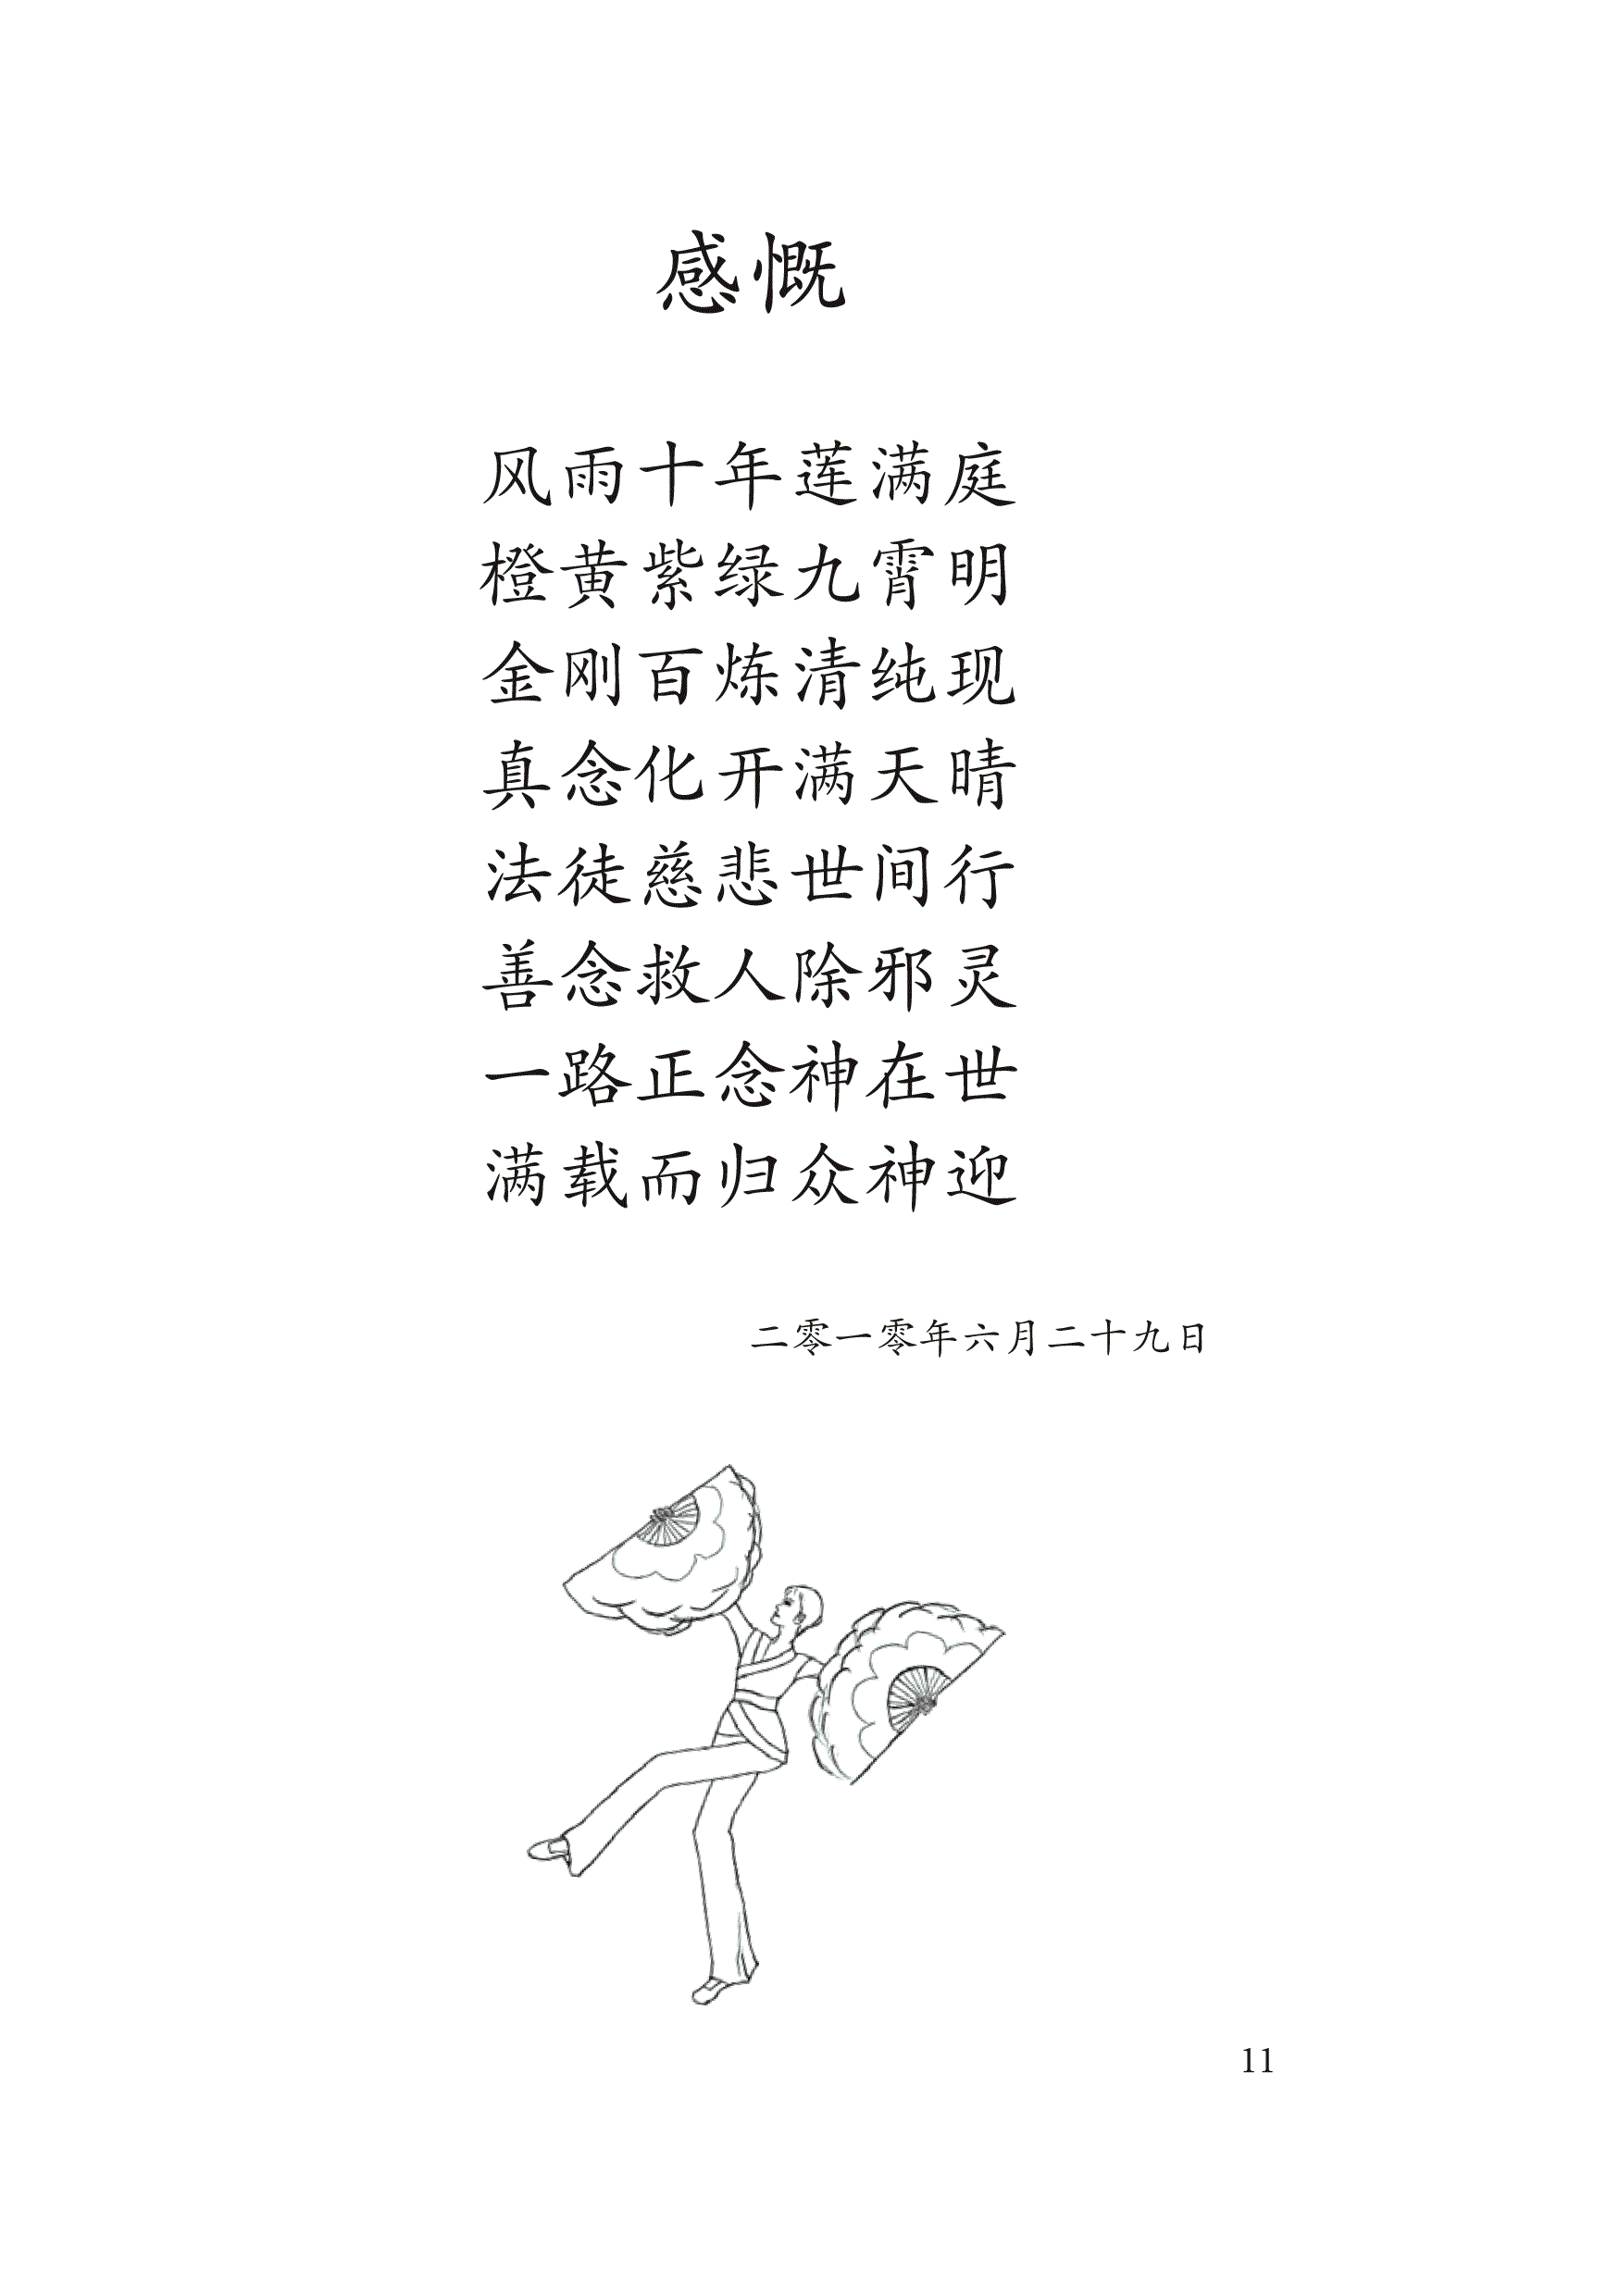 感慨
风雨十年莲满庭
橙黄紫绿九霄明
金刚百炼清纯现
真念化开满天晴
法徒慈悲世间行
善念救人除邪灵
一路正念神在世
满载而归众神迎
二零一零年六月二十九日
11